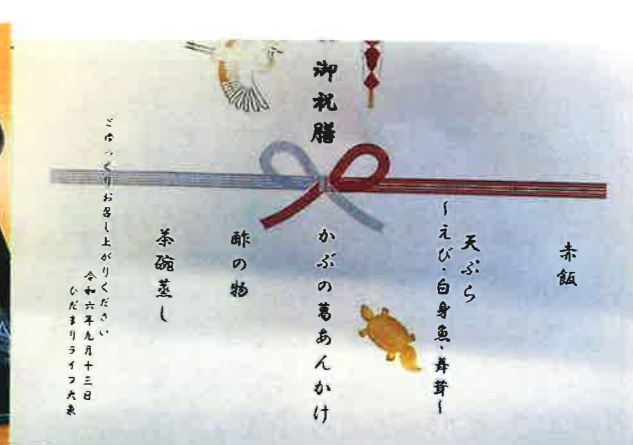 御祝膳
赤飯
天ぷら
～えび・白身魚・舞茸～
かぶの葛あんかけ
酢の物
茶碗蒸し
ごゆっくりお召し上がりください
令和六年九月十三日
ひだまりライフ大泉